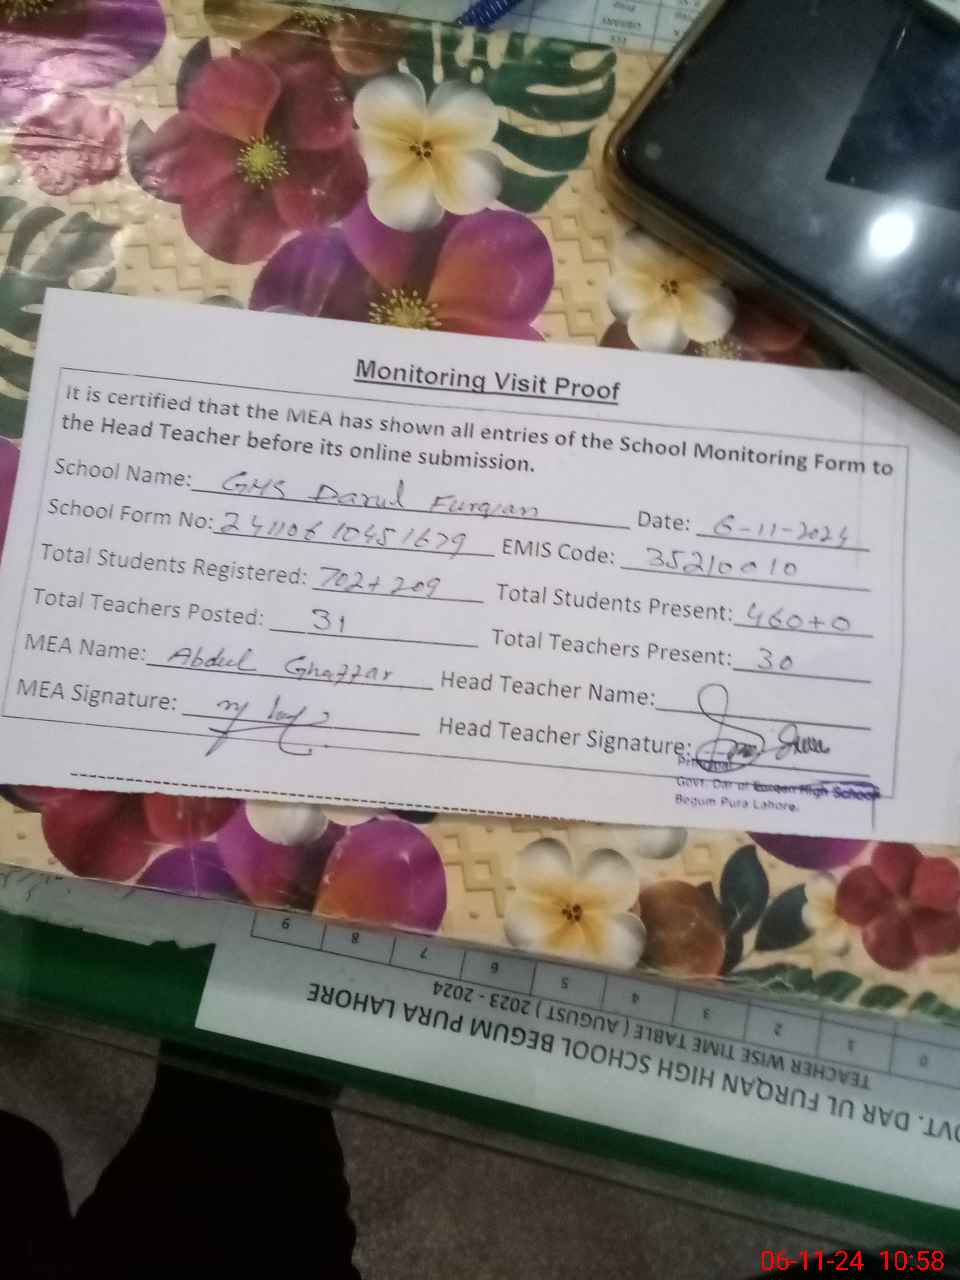 Monitoring Visit Proof
It is certified that the MEA has shown all entries of the School Monitoring Form to
the Head Teacher before its online submission.
School Name: GHS Darul Furqan Date: 6-11-2024
School Form No: 241106 10451679 EMIS Code: 35210010
Total Students Registered: 702+209 Total Students Present: 460+0
Total Teachers Posted: 31 Total Teachers Present: 30
MEA Name: Abdul Ghaffar Head Teacher Name:
MEA Signature: Head Teacher Signature:
Principal
Govt. Dar ul Furqan High School
Begum Pura Lahore.
OVT. DAR UL FURQAN HIGH SCHOOL BEGUM PURA LAHORE
TEACHER WISE TIME TABLE ( AUGUST ) 2023 - 2024
0 1 2 3 4 5 6 7 8 9
06-11-24 10:58